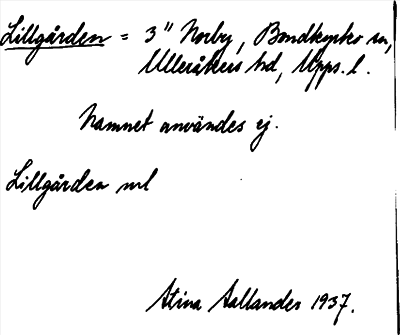 Lillgården = 3" Norby, Bondkyrko sn,
Ulleråkers hd, Upps. l.
Namnet användes ej.
Lillgården ml
Stina Aallander 1937.